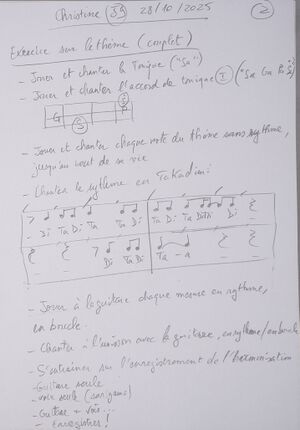 Christine 35 28/10/2025 2
Exercice sur le thème (complet)
- Jouer et chanter la Tonique ("Sa")
- Jouer et chanter l'accord de tonique I ("Sa Ga Pa Sa")
G S P S
- Jouer et chanter chaque note du thème sans rythme,
jusqu'au bout de sa vie
- Chanter le rythme en Takadimi:
Di Ta Di Ta Di Ta Di Ta Di
Di Ta Di Ta - a
- Jouer à la guitare chaque mesure en rythme,
en boucle.
- Chanter à l'unisson avec la guitare, en rythme/en boucle
- S'entraîner sur l'enregistrement de l'harmonisation
- Guitare seule
- voix seule (sargams)
- Guitare + voix...
- Enregistrer!